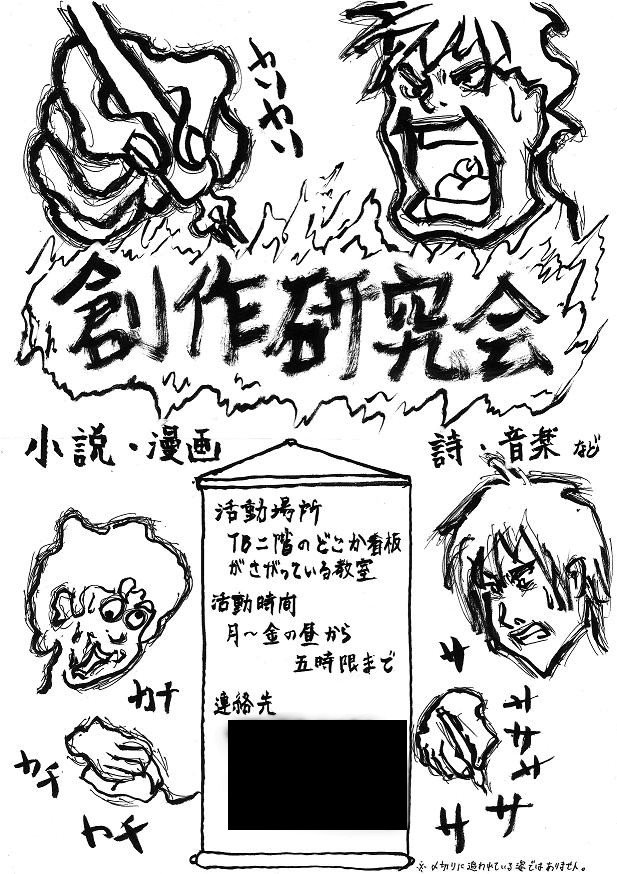 わいわい
創作研究会
小説・漫画
詩・音楽 など
活動場所
TB二階のどこか看板
がさがっている教室
活動時間
月～金の昼から
五時限まで
連絡先
カチ
カチ
カチ
サ
サササ
サ
サ
※〆切りに追われている姿ではありません。